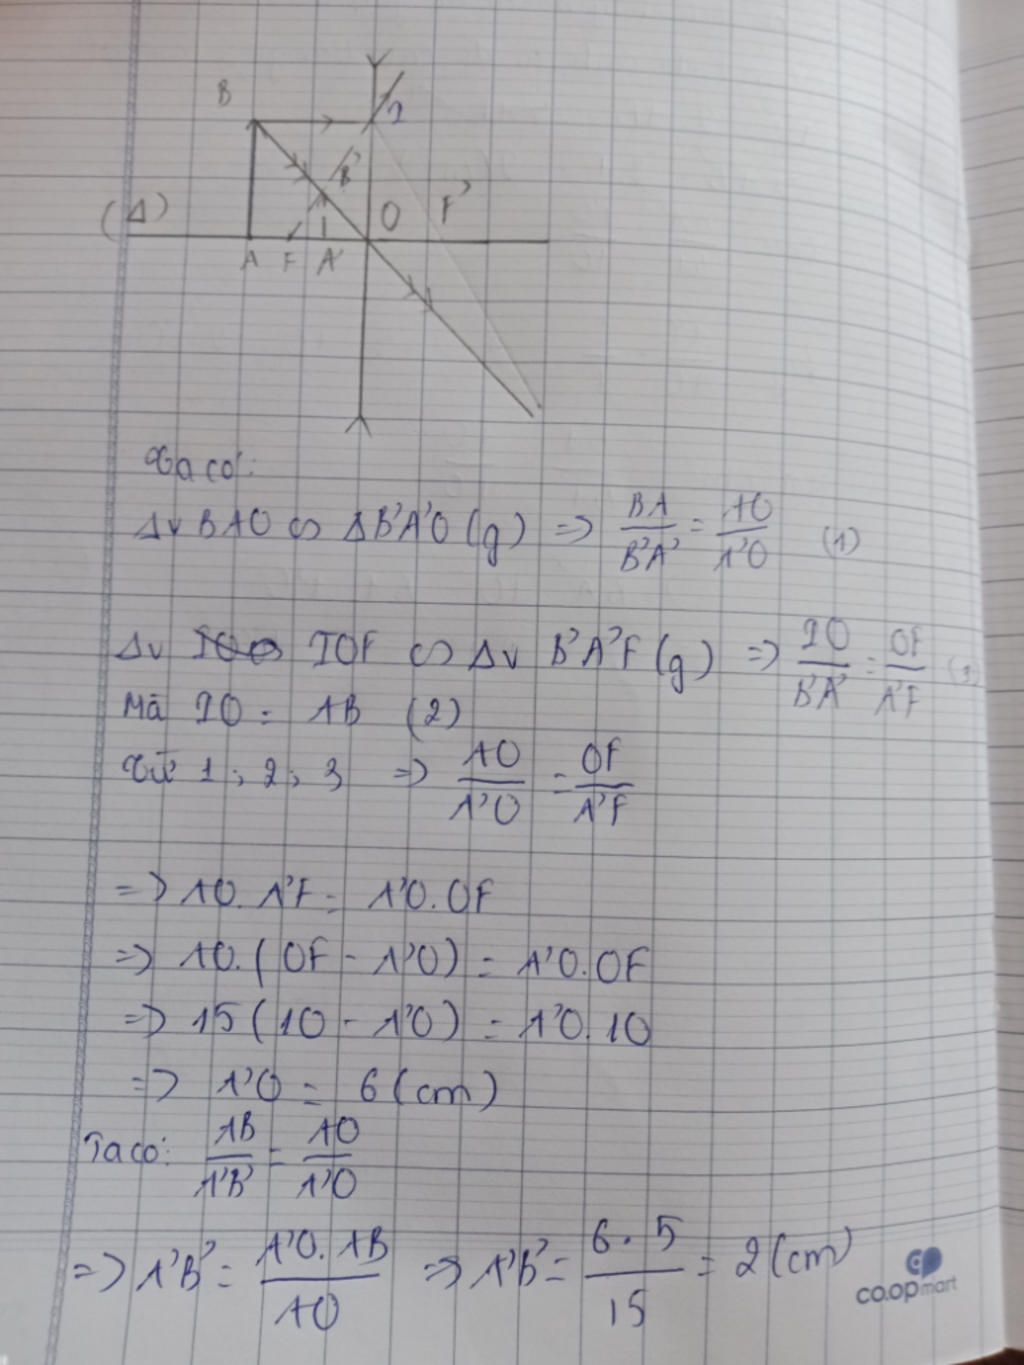 B
I
B'
(Δ)
O
F'
A F A'
Ta có:
Δv BAO ∽ ΔB'A'O (g) => BA/B'A' = AO/A'O (1)
Δv IOF ∽ Δv B'A'F (g) => IO/B'A' = OF/A'F (3)
Mà IO = AB (2)
Từ 1; 2; 3 => AO/A'O = OF/A'F
=> AO. A'F = A'O. OF
=> AO. (OF - A'O) = A'O. OF
=> 15 (10 - A'O) = A'O. 10
=> A'O = 6 (cm)
Ta có: AB/A'B' = AO/A'O
=> A'B' = A'O. AB/AO => A'B' = 6 . 5/15 = 2 (cm)
co.opmart